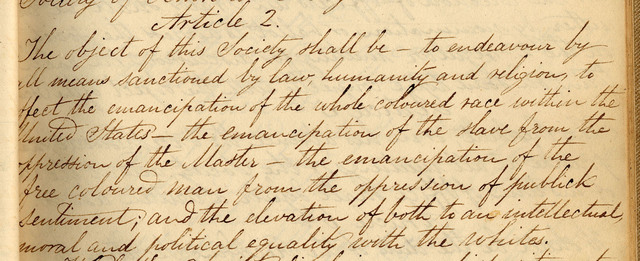 Society of
Article 2.
The object of this Society shall be – to endeavour by
all means sanctioned by law, humanity and religion, to
effect the emancipation of the whole coloured race within the
United States – the emancipation of the slave from the
oppression of the Master – the emancipation of the
free coloured man from the oppression of publick
sentiment; and the elevation of both to an intellectual,
moral and political equality with the whites.